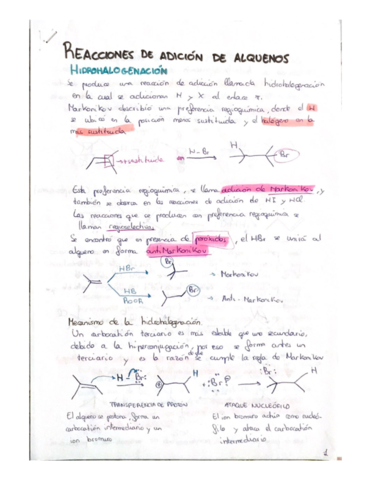 REACCIONES DE ADICIÓN DE ALQUENOS
HIDROHALOGENACIÓN
Se produce una reacción de adición llamada hidrohalogenación
en la cual se adicionan H y X al enlace π.
Markonikov describió una preferencia regioquímica, donde el H
se ubica en la posición menos sustituida y el halógeno en la
más sustituida
+ sustituida
H-Br
H
Br
Esta preferencia regioquímica, se llama adición de Markonikov, y
también se observa en las reacciones de adición de HI y HCl.
Las reacciones que se producen con preferencia regioquímica se
llaman regioselectivas.
Se encontró que en presencia de peróxidos, el HBr se unirá al
alqueno en forma antiMarkonikov
HBr
Br
→ Markonikov
HBr
ROOR
Br
→ Anti-Markonikov
Mecanismo de la hidrohalogenación
Un carbocatión terciario es más estable que uno secundario,
debido a la hiperconjugación, por eso se forma antes un
terciario y es la razón de que se cumple la regla de Markonikov
H
Br
H
Br
H
Br
TRANSFERENCIA DE PROTÓN
ATAQUE NUCLEÓFILO
El alqueno se protona, forma un
carbocatión intermediario y un
ion bromuro
El ion bromuro actúa como nucleó-
filo y ataca al carbocatión
intermediario
1